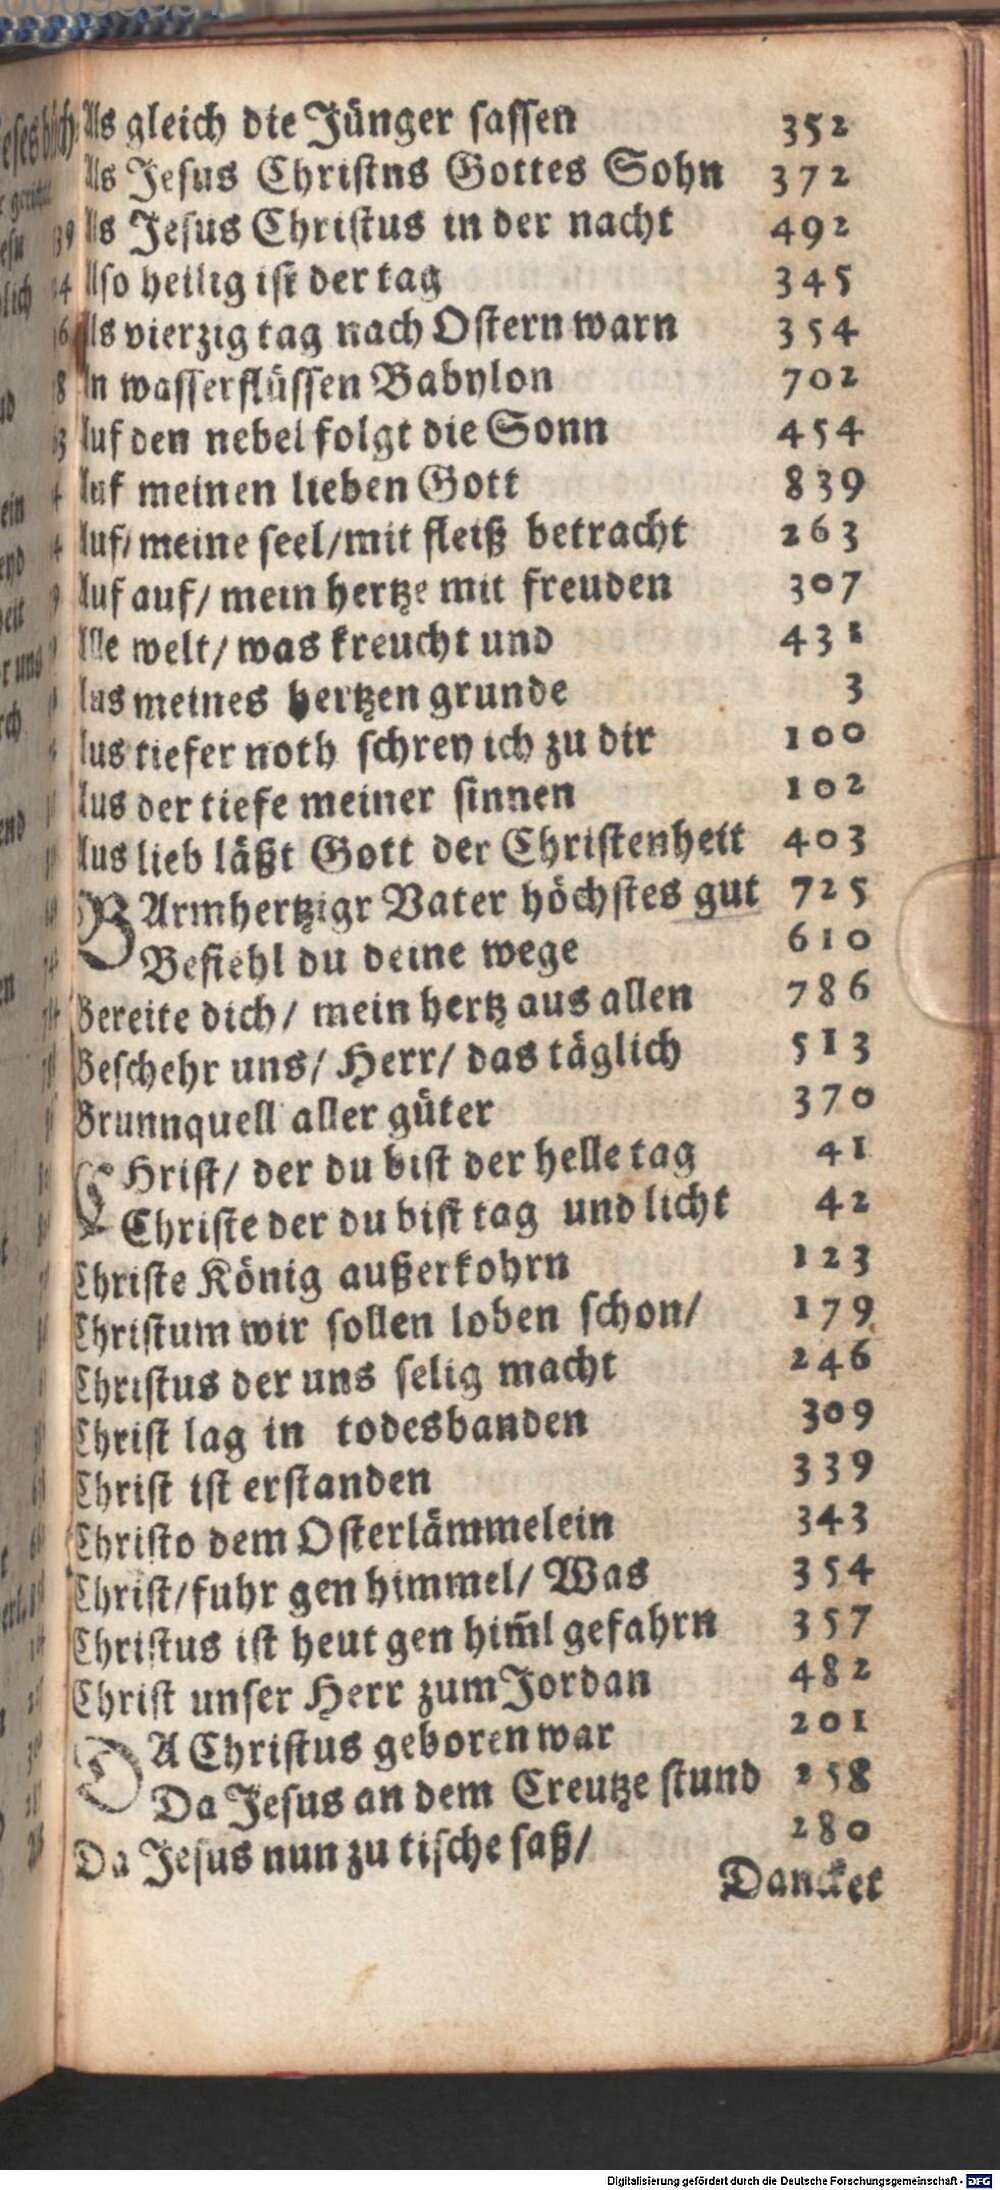 Als gleich die Jünger sassen 352
Als Jesus Christns Gottes Sohn 372
Als Jesus Christus in der nacht 492
Also heilig ist der tag 345
Als vierzig tag nach Ostern warn 354
An wasserflüssen Babylon 702
Auf den nebel folgt die Sonn 454
Auf meinen lieben Gott 839
Auf/ meine seel/mit fleiß betracht 263
Auf auf/ mein hertze mit freuden 307
Alle welt/ was kreucht und 431
Aus meines hertzen grunde 3
Aus tiefer noth schrey ich zu dir 100
Aus der tiefe meiner sinnen 102
Aus lieb läßt Gott der Christenheit 403
BArmhertzigr Vater höchstes gut 725
Befiehl du deine wege 610
Bereite dich/ mein hertz aus allen 786
Beschehr uns/ Herr/ das täglich 513
Brunnquell aller güter 370
CHrist/ der du bist der helle tag 41
Christe der du bist tag und licht 42
Christe König außerkohrn 123
Christum wir sollen loben schon/ 179
Christus der uns selig macht 246
Christ lag in todesbanden 309
Christ ist erstanden 339
Christo dem Osterlämmelein 343
Christ/fuhr gen himmel/ Was 354
Christus ist heut gen him̃l gefahrn 357
Christ unser Herr zum Jordan 482
DA Christus geboren war 201
Da Jesus an dem Creutze stund 258
Da Jesus nun zu tische saß/ 280
Dancket
Digitalisierung gefördert durch die Deutsche Forschungsgemeinschaft - DFG